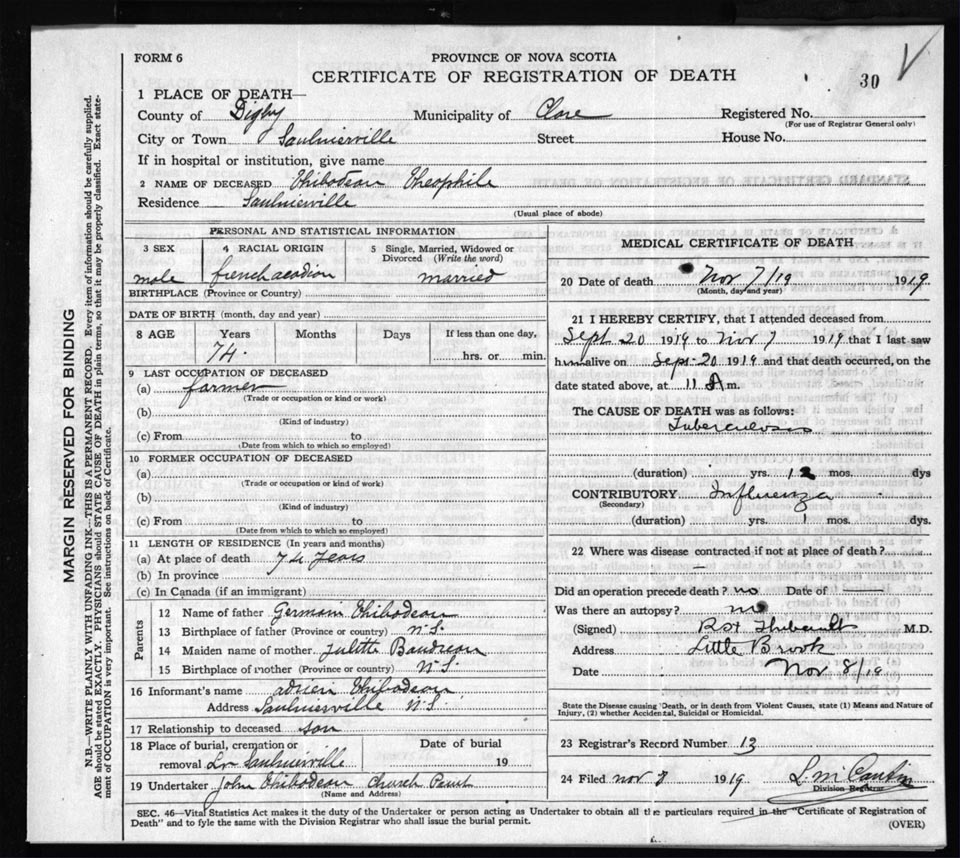 FORM 6
PROVINCE OF NOVA SCOTIA
CERTIFICATE OF REGISTRATION OF DEATH
30
1 PLACE OF DEATH—
County of Digby Municipality of Clare Registered No.
(For use of Registrar General only)
City or Town Saulnierville Street House No.
If in hospital or institution, give name
2 NAME OF DECEASED Thibodeau Theophile
Residence Saulnierville
(Usual place of abode)
PERSONAL AND STATISTICAL INFORMATION
3 SEX
male
4 RACIAL ORIGIN
french acadian
5 Single, Married, Widowed or Divorced (Write the word)
married
BIRTHPLACE (Province or Country)
DATE OF BIRTH (month, day and year)
8 AGE Years Months Days If less than one day,
74. hrs. or min.
9 LAST OCCUPATION OF DECEASED
(a) farmer
(Trade or occupation or kind or work)
(b)
(Kind of industry)
(c) From to
(Date from which to which so employed)
10 FORMER OCCUPATION OF DECEASED
(a)
(Trade or occupation or kind of work)
(b)
(Kind of industry)
(c) From to
(Date from which to which so employed)
11 LENGTH OF RESIDENCE (In years and months)
(a) At place of death 74 years
(b) In province
(c) In Canada (if an immigrant)
Parents
12 Name of father Germain Thibodeau
13 Birthplace of father (Province or country) N.S.
14 Maiden name of mother Julitte
15 Birthplace of mother (Province or country) N.S.
16 Informant's name Thibodeau
Address Saulnierville N.S.
17 Relationship to deceased son
18 Place of burial, cremation or Date of burial
removal Saulnierville 19
19 Undertaker John Thibodeau Church Point
(Name and Address)
MEDICAL CERTIFICATE OF DEATH
20 Date of death Nov 7/19 1919
(Month, day and year)
21 I HEREBY CERTIFY, that I attended deceased from
Sept 20 1919 to Nov 7 1919 that I last saw
him alive on Sept 20 1919 and that death occurred, on the
date stated above, at 11 A m.
The CAUSE OF DEATH was as follows:
Tuberculosis
(duration) yrs. 12 mos. dys
CONTRIBUTORY Influenza
(Secondary)
(duration) yrs. 1 mos. dys.
22 Where was disease contracted if not at place of death?
Did an operation precede death? no Date of
Was there an autopsy? no
(Signed) Thibault M.D.
Address Little Brook
Date Nov 8/19
State the Disease causing Death, or in death from Violent Causes, state (1) Means and Nature of
Injury, (2) whether Accidental, Suicidal or Homicidal.
23 Registrar's Record Number 13
24 Filed nov 8 1919
Division Registrar
SEC. 46—Vital Statistics Act makes it the duty of the Undertaker or person acting as Undertaker to obtain all the particulars required in the "Certificate of Registration of
Death" and to fyle the same with the Division Registrar who shall issue the burial permit.
(OVER)
MARGIN RESERVED FOR BINDING
N.B.—WRITE PLAINLY WITH UNFADING INK—THIS IS A PERMANENT RECORD. Every item of information should be carefully supplied.
AGE should be stated EXACTLY. PHYSICIANS should STATE CAUSE OF DEATH in plain terms, so that it may be properly classified. Exact state-
ment of OCCUPATION is very important. See instructions on back of Certificate.